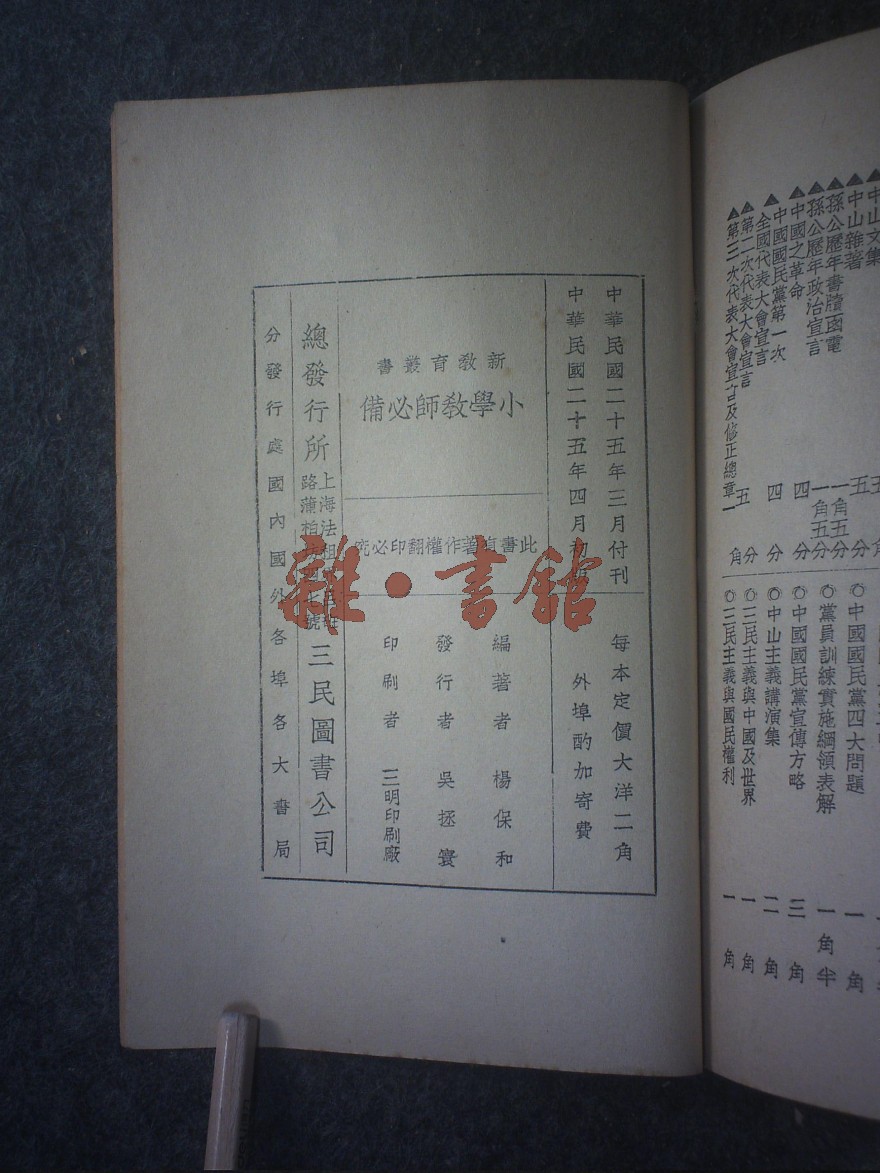 中華民國二十五年三月付刊
中華民國二十五年四月初版
每本定價大洋二角
外埠酌加寄費
新教育叢書
小學教師必備
此書有著作權翻印必究
編著者 楊保和
發行者 吳拯寰
印刷者 三明印刷廠
總發行所
上海法租界
路蒲柏
號
三民圖書公司
分發行處國內國外各埠各大書局
雜·書館
中山文集
▲中山雜著 五分
▲孫公歷年書牘函電 一角五分
▲孫公歷年政治宣言 一角五分
▲中國之革命 四分
▲中國國民黨第一次
全國代表大會宣言 四分
▲第二次代表大會宣言 五分
▲第三次代表大會宣言及修正總章一角
◎中國國民黨四大問題 一角
◎黨員訓練實施綱領表解 一角半
◎中國國民黨宣傳方略 三角
◎中山主義講演集 二角
◎三民主義與中國及世界 一角
◎三民主義與國民權利 一角